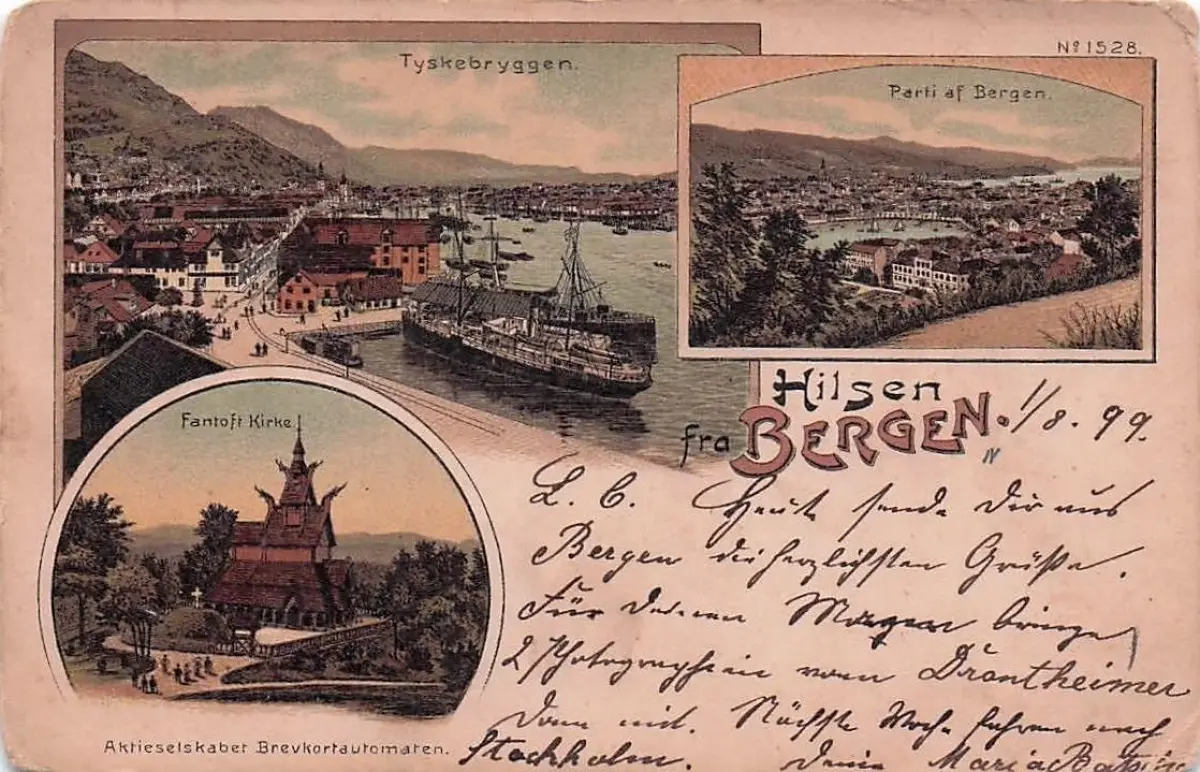 Tyskebryggen.
Nº 1528.
Parti af Bergen.
Fantoft Kirke
Hilsen
fra BERGEN. 1/8. 99.
L. C. Heute sende Dir aus
Bergen die herzlichsten Grüße.
Für bringe
2 Photographien vom Drontheimer
Dom mit. Nächste Woche fahren nach
Stockholm. Deine Maria
Aktieselskabet Brevkortautomaten.